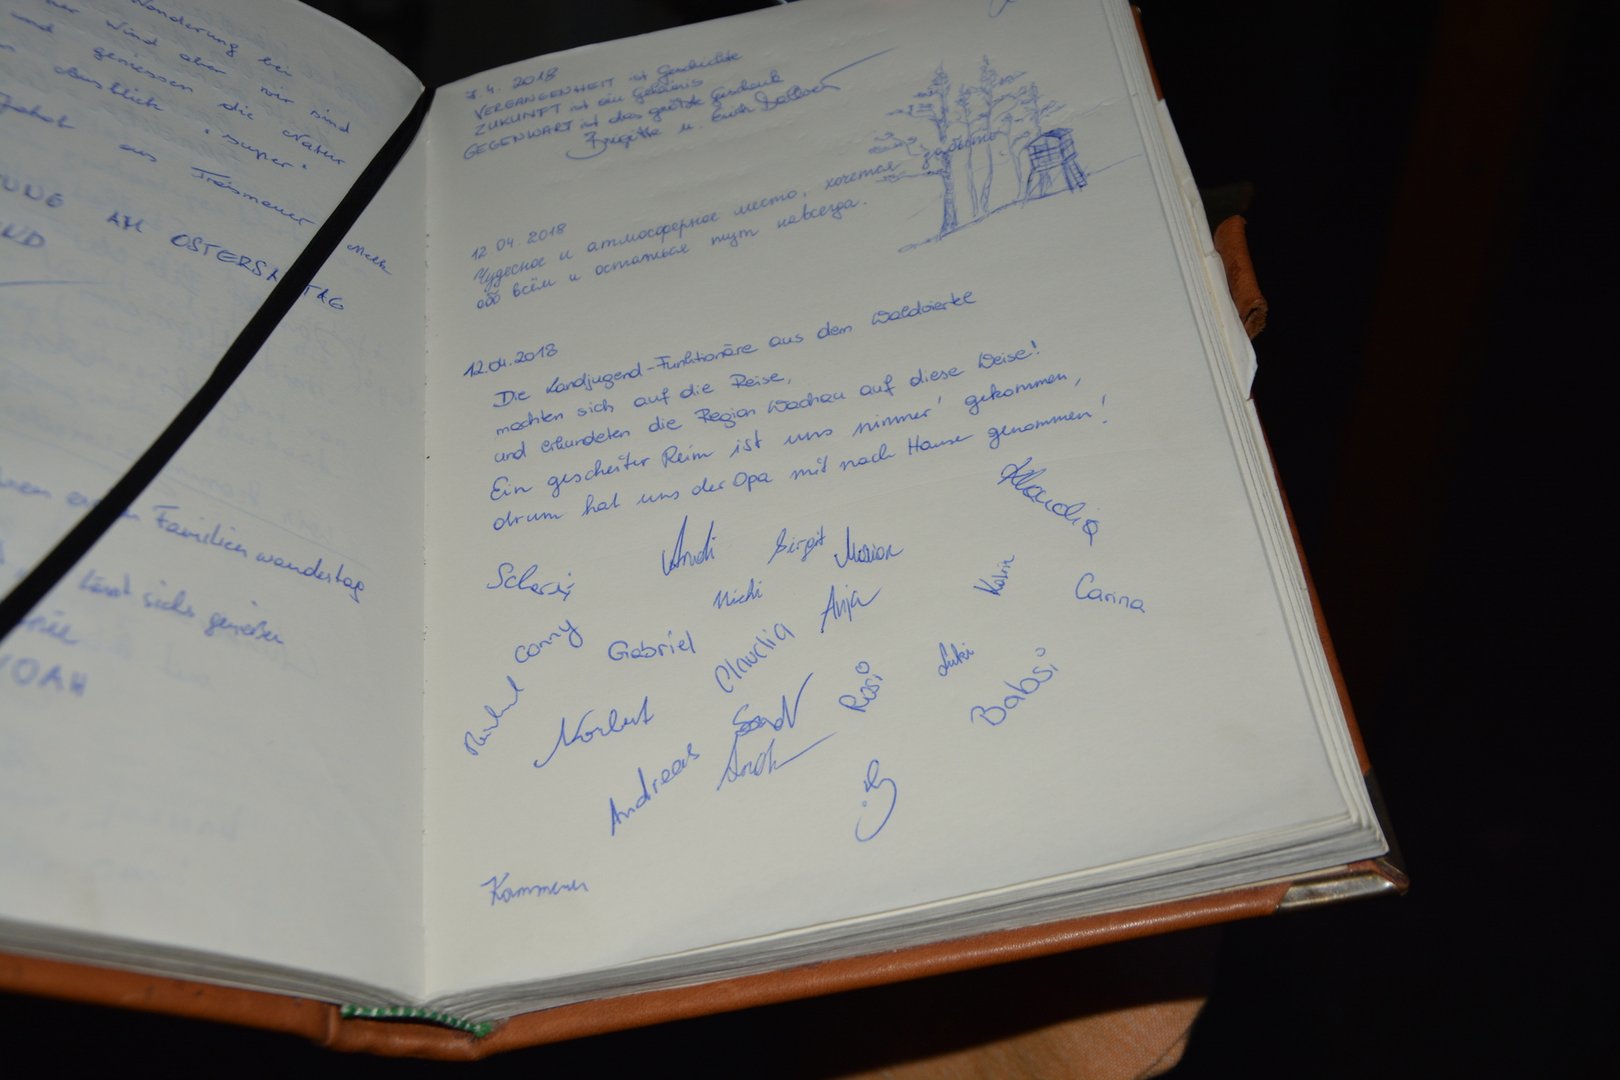 Wanderung bei
Wind aber wir sind
und geniessen die Natur
Ausblick "super"
aus Traismauer
Melk
AM OSTERSA TAG
Familienwandertag
sichs genießen
NOAH
7. 4. 2018
VERGANGENHEIT ist Geschichte
ZUKUNFT ist ein Geheimnis
GEGENWART ist das größte Geschenk
Brigitte u. Erich
12 04. 2018
Чудесное и атмосферное место, хочется забыть
обо всём и остаться тут навсегда.
12.04.2018
Die Landjugend-Funktionäre aus dem Waldviertl
machten sich auf die Reise,
und erkundeten die Region Wachau auf diese Weise!
Ein gescheiter Reim ist uns nimmer' gekommen,
drum hat uns der Opa mit nach Hause genommen!
Klaudia
Andi Birgit Marion
Michi Anja Katrin Carina
Conny Gabriel Claudia
Norbert Rosi Luki Babsi
Andreas
Kammerer